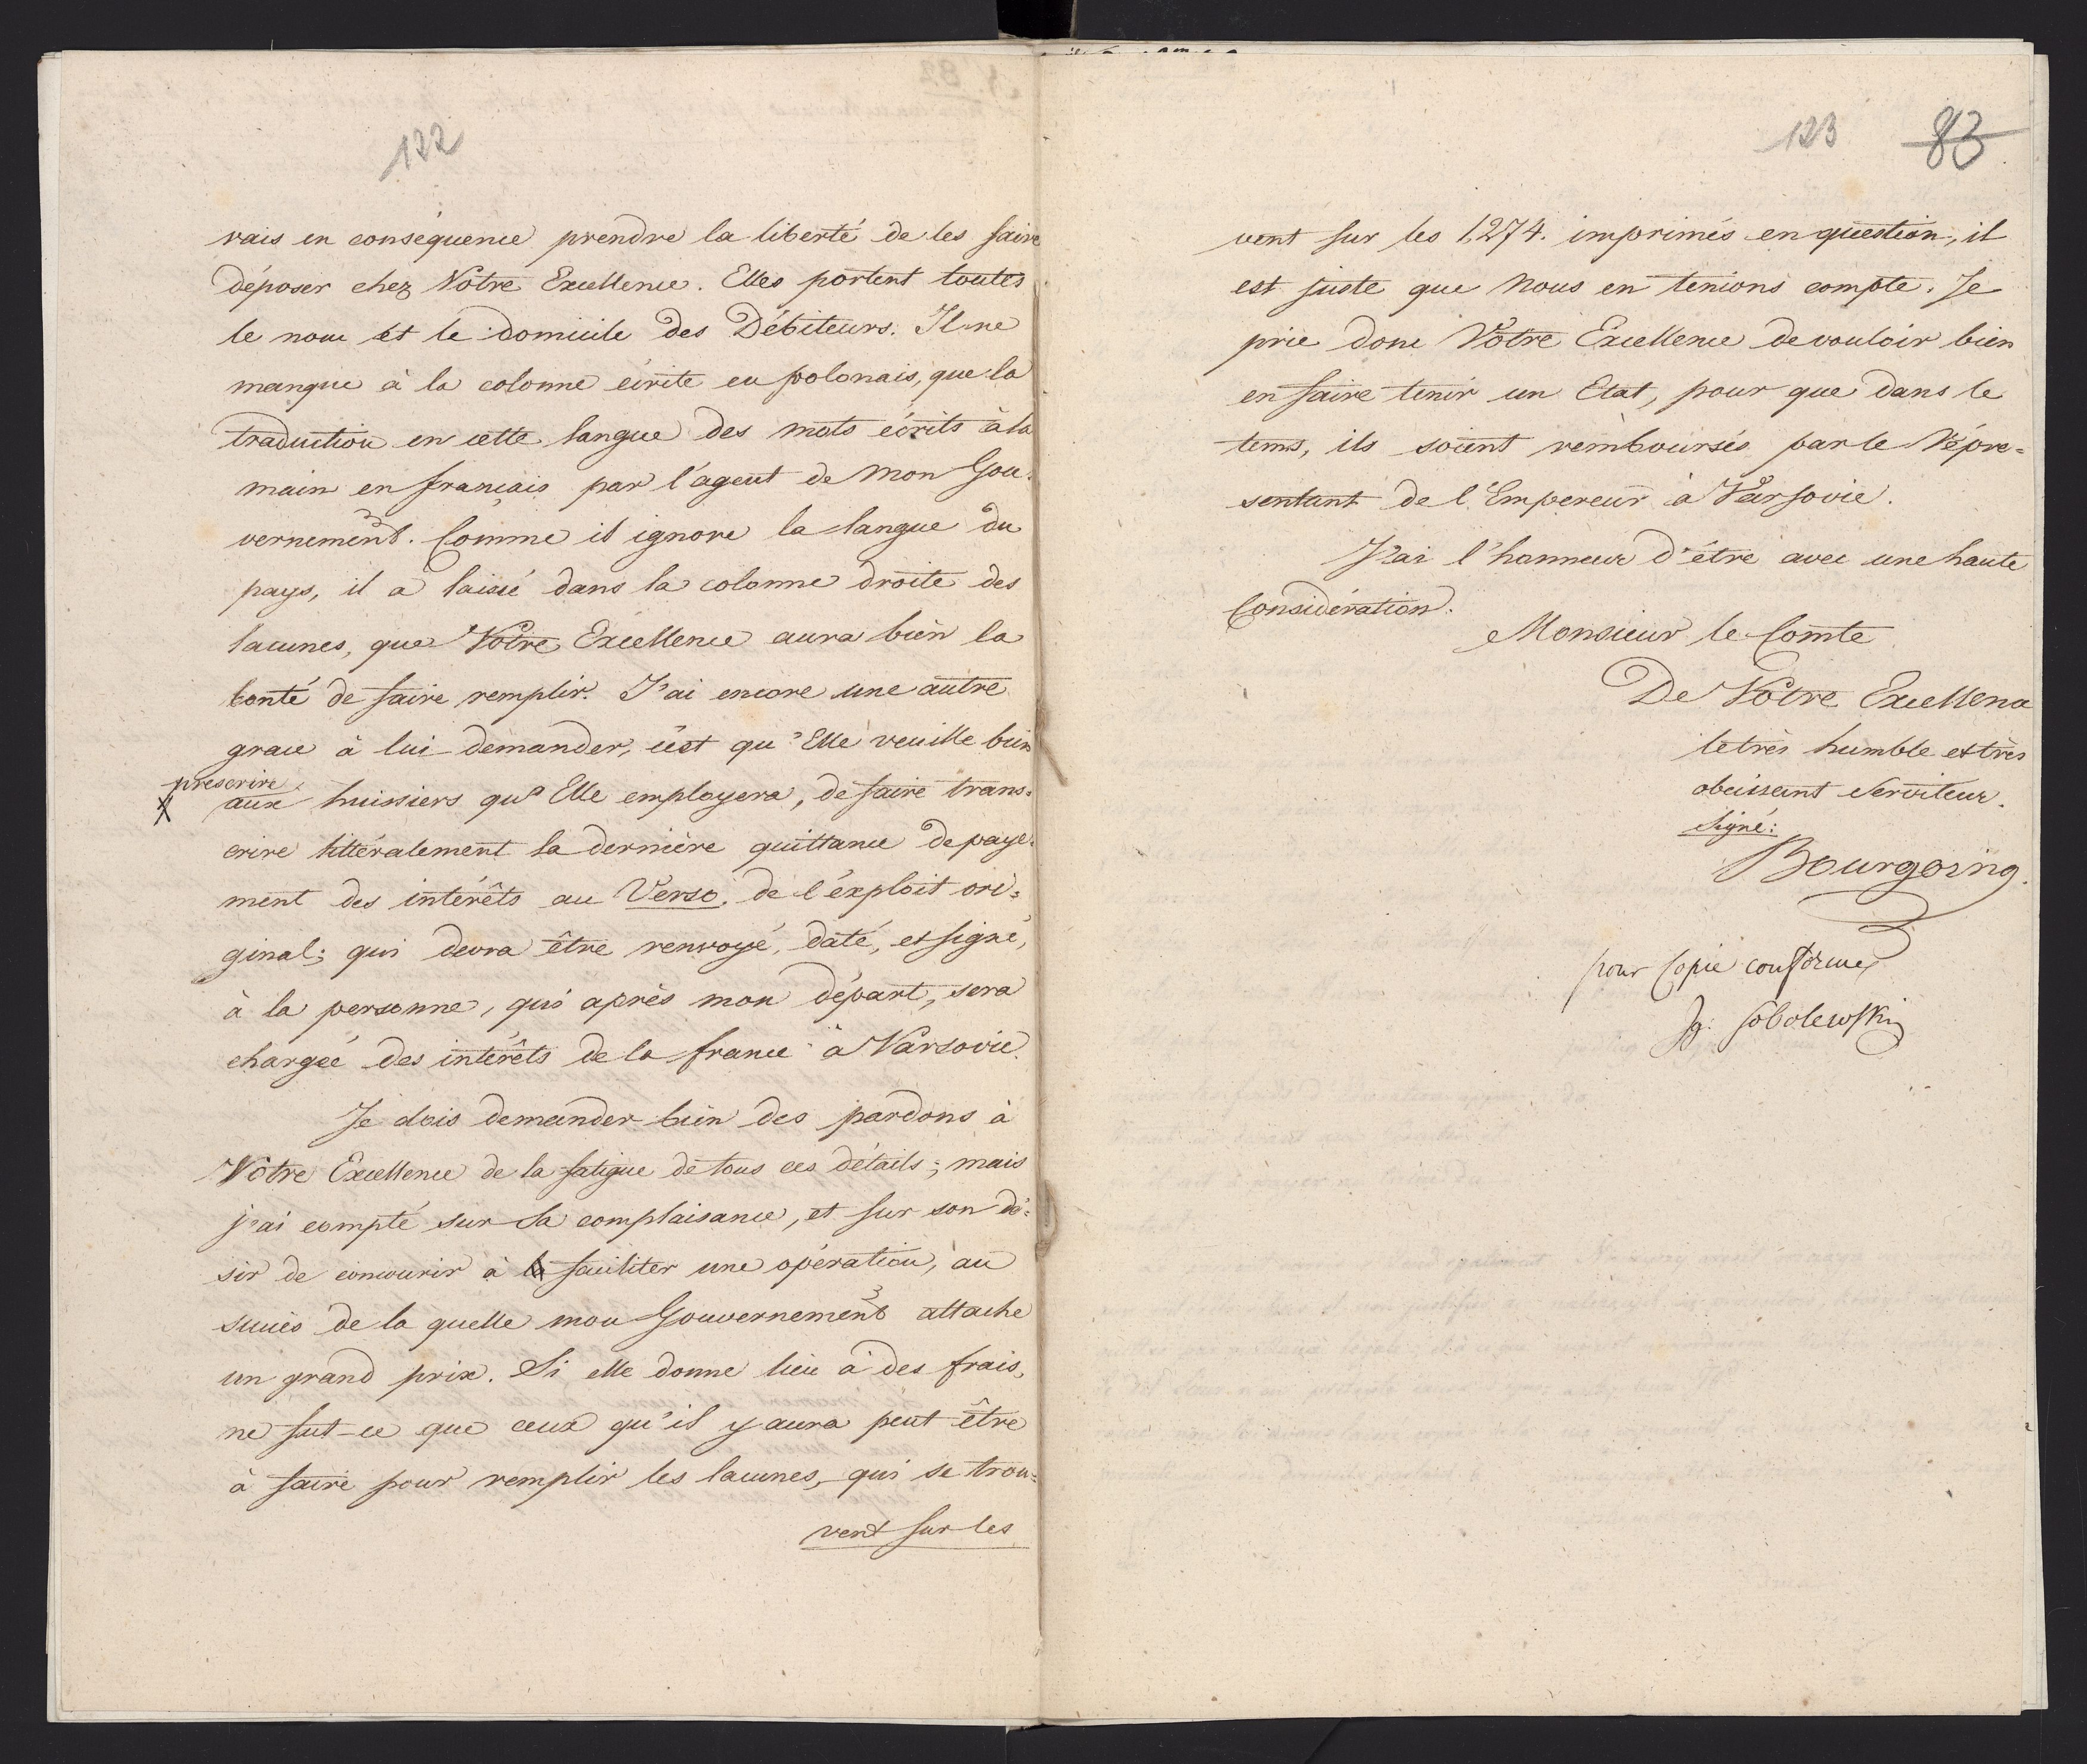 122
vais en conséquence prendre la liberté de les faire
déposer chez Votre Excellence. Elles portent toutes
le nom et le domicile des Débiteurs. Il ne
manque à la colonne écrite en polonais, que la
traduction en cette langue des mots écrits à la
main en français par l'agent de mon Gou=
vernement. Comme il ignore la langue du
pays, il a laissé dans la colonne droite des
lacunes, que Votre Excellence aura bien la
bonté de faire remplir. J'ai encore une autre
grace à lui demander, c'est qu'Elle veuille bien
prescrire
X aux huissiers qu'Elle employera, de faire trans=
crire littéralement la dernière quittance de paye=
ment des intérêts au Verso de l'éxploit ori=
ginal; qui devra être renvoyé, daté, et signé,
à la personne, qui après mon départ, sera
chargée des intérêts de la france à Varsovie.
Je dois demander bien des pardons à
Vôtre Excellence de la fatigue de tous ces détails; mais
j'ai compté sur Sa complaisance, et sur son dé=
sir de concourir à faciliter une opération, au
succès de la quelle mon Gouvernement attache
un grand prix. Si elle donne lieu à des frais,
ne fut-ce que ceux qu'il y aura peut être
à faire pour remplir les lacunes, qui se trou=
vent sur les
123 83
vent sur les 1,274. imprimés en question, il
est juste que Nous en tenions compte. Je
prie donc Votre Excellence de vouloir bien
en faire tenir un Etat, pour que dans le
tems, ils soient remboursés par le Répre=
sentant de l'Empereur à Varsovie.
J'ai l'honneur d'être avec une haute
Considération.
Monsieur le Comte
De Votre Excellence
le très humble et très
obeissant Serviteur.
signé:
Bourgoing.
pour Copie conforme
Ig: Sobolewski